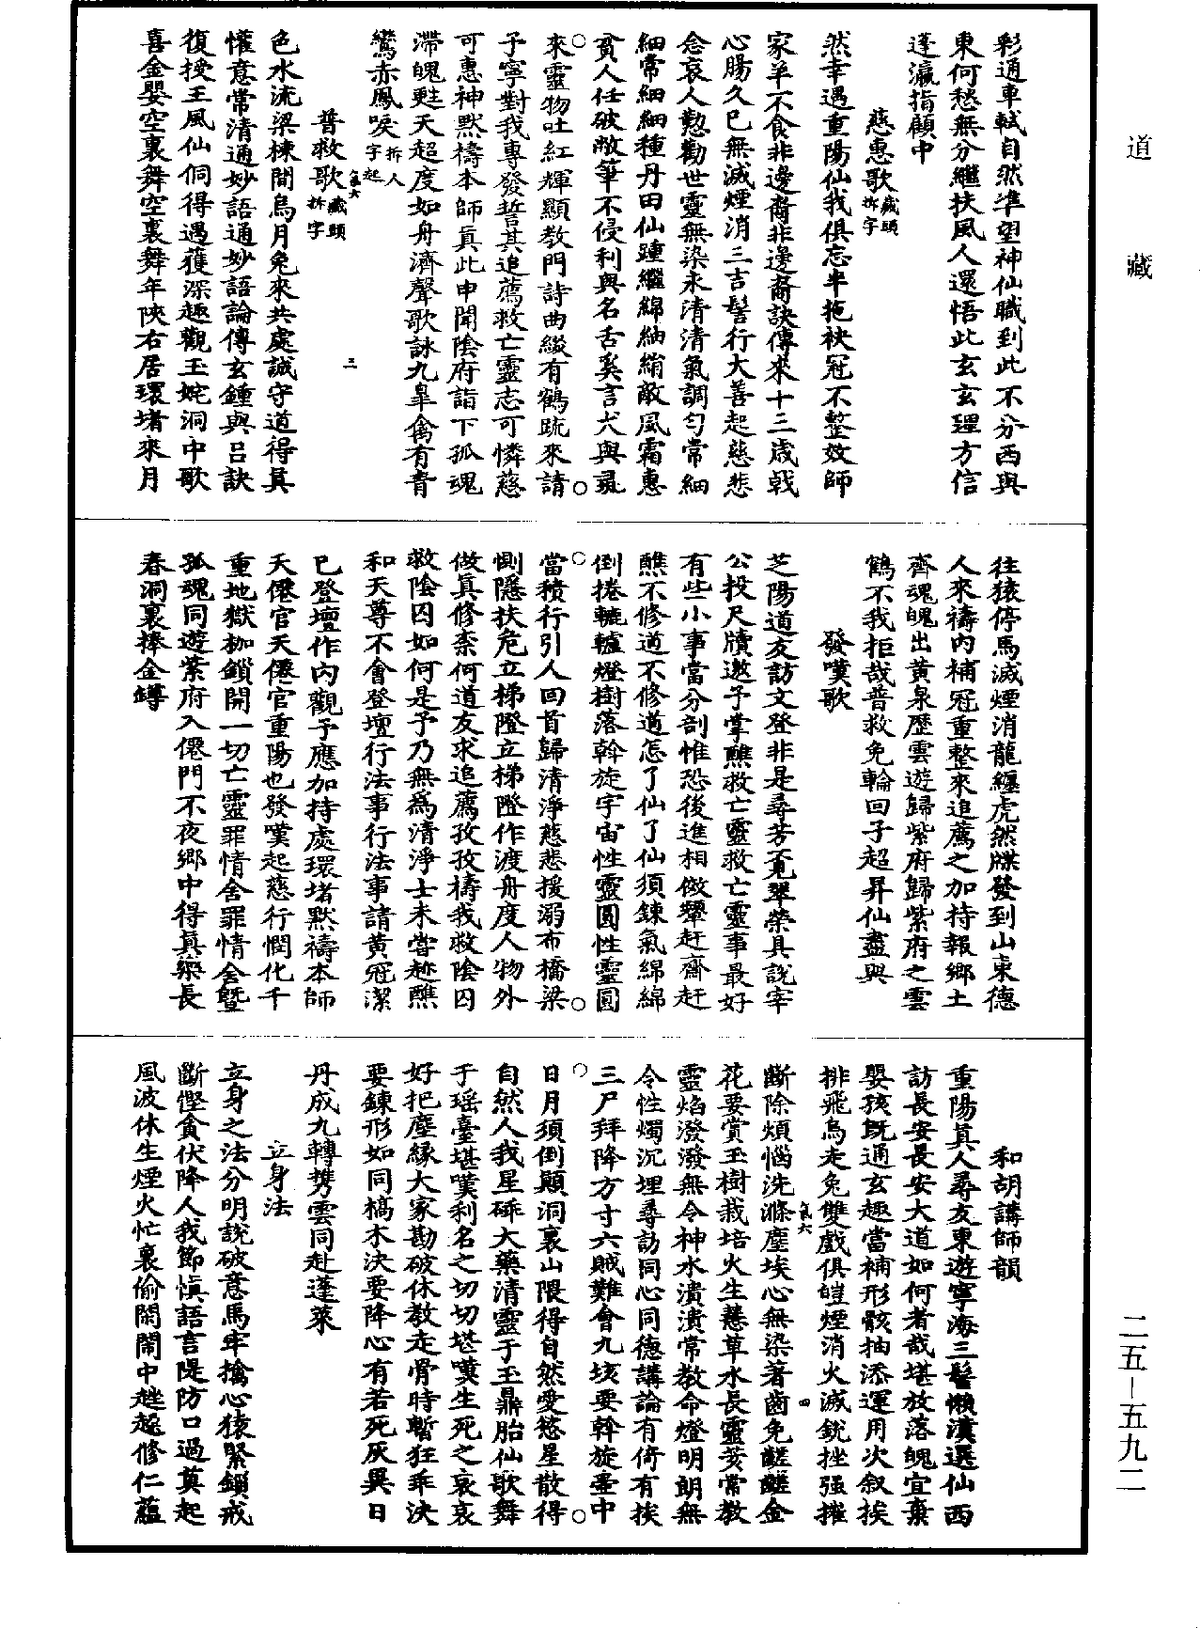 道藏
彩通車軾自然准望神仙職到此不分西與
東何愁無分繼扶風人還悟此玄玄理方信
蓬瀛指顧中
慈惠歌藏頭拆字
然幸遇重陽仙我俱忘半拖袂冠不整效師
家羊不食非邊裔非邊裔訣傳來十三歲戟
心腸久已無滅煙消三吉髻行大善起慈悲
念哀人懃勸世靈無染永清清氣調勻常細
細常細細種丹田仙踵繼綿綿紬綃敵風霜惠
貧人任破敝筆不侵利與名舌奚言犬與彘
來靈物吐紅輝顯教門詩曲緩有鶴跪來請
予寧對我專發誓其追薦救亡靈志可憐慈
可惠神默禱本師真此申聞陰府詣下孤魂
滯魄甦天超度如舟濟聲歌詠九皐禽有青
鸞赤鳳唳拆人字起
普救歌藏頭拆字
氣六
三
色水流梁棟間烏月兔來共處誠守道得真
懽意常清通妙語通妙語論傳玄鍾與呂訣
復授王風仙侗得遇獲深趣觀玉姹洞中歌
喜金嬰空裏舞空裏舞年陝右居環堵來月
往猿停馬滅煙消龍纏虎然牒發到山東德
人來禱內補冠重整來追薦之加持報鄉土
齊魂魄出黃泉歷雲遊歸紫府歸紫府之雲
鶴不我拒哉普救免輪回子超昇仙盡與
發嘆歌
芝陽道友訪文登非是尋芳覓翠榮具說宰
公投尺牘邀予掌醮救亡靈救亡靈事最好
有些小事當分剖惟恐後進相倣顰赶齋赶
醮不修道不修道怎了仙了仙須鍊氣綿綿
倒捲轆轤燈樹落斡旋宇宙性靈圓性靈圓
當積行引人回首歸清淨慈悲援溺布橋梁
惻隱扶危立梯隥立梯隥作渡舟度人物外
做真修柰何道友求追薦孜孜禱我救陰囚
救陰囚如何是予乃無為清淨士未嘗趂醮
和天尊不會登壇行法事行法事請黃冠潔
已登壇作內觀予應加持處環堵默禱本師
天僊官天僊官重陽也發嘆起慈行憫化千
重地獄枷鎖開一切亡靈罪情舍罪情舍曁
孤魂同遊紫府入僊門不夜鄉中得真樂長
春洞裏捧金罇
和胡講師韻
重陽真人尋友東遊寧海三髻懶漢選仙西
訪長安長安大道如何者哉堪放落魄宜棄
嬰孩既通玄趣當補形骸抽添運用次叙挨
排飛烏走兔雙戲俱皚煙消火滅銳挫强摧
氣六
四
斷除煩惱洗滌塵埃心無染著齒免齷齪金
花要賞玉樹栽培火生慧草水長靈荄常教
靈焰潑潑無令神水潰潰常教命燈明朗無
令性燭沉埋尋訪同心同德講論有倚有挨
三尸拜降方寸六賊難會九垓要斡旋壺中
日月須倒顛洞裏山隈得自然愛慾星散得
自然人我星碎大藥清靈于玉鼎胎仙歌舞
于瑤臺堪嘆利名之切切堪嘆生死之哀哀
好把塵緣大家勘破休教走骨時暫狂乖決
要鍊形如同槁木決要降心有若死灰異日
丹成九轉携雲同赴蓬萊
立身法
立身之法分明說破意馬牢擒心猿緊鎖戒
斷慳貪伏降人我節慎語言隄防口過莫起
風波休生煙火忙裏偷閑鬧中趖趓修仁蘊
二五—五九二